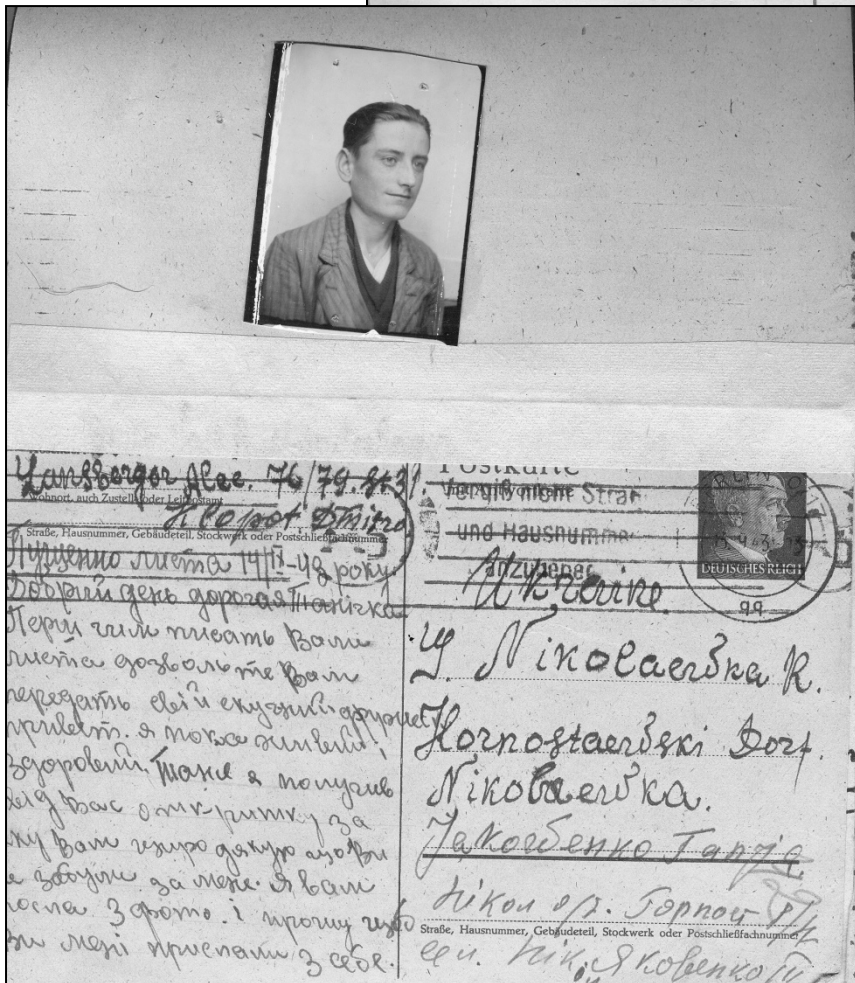 Landsberger Alee. 76/79. St 3
Wohnort, auch Zustell- oder Leitpostamt
Hlopot Dmitro
Straße, Hausnummer, Gebäudeteil, Stockwerk oder Postschließfachnummer
Пущенно листа 14/IX-43 року.
Добрий день дорогая Танічка
Перш чим писать Вам
листа дозвольте Вам
передать свій скучний
привєт. я пока живий і
здоровий. Таня я получив
від Вас откритку за
яку Вам щиро дякую що Ви
не забули за мене. Я вам
посла 3 фото. і прошу щоб
Ви мені прислали з себе.
Postkarte
Vergiß nicht Straß
und Hausnummer
anzugeben
DEUTSCHES REICH
Ukraine.
Nikolaewka R.
Hornostaewski Dorf.
Nikolaewka.
Jakowenko Tanja
Straße, Hausnummer, Gebäudeteil, Stockwerk oder Postschließfachnummer
Яковенко